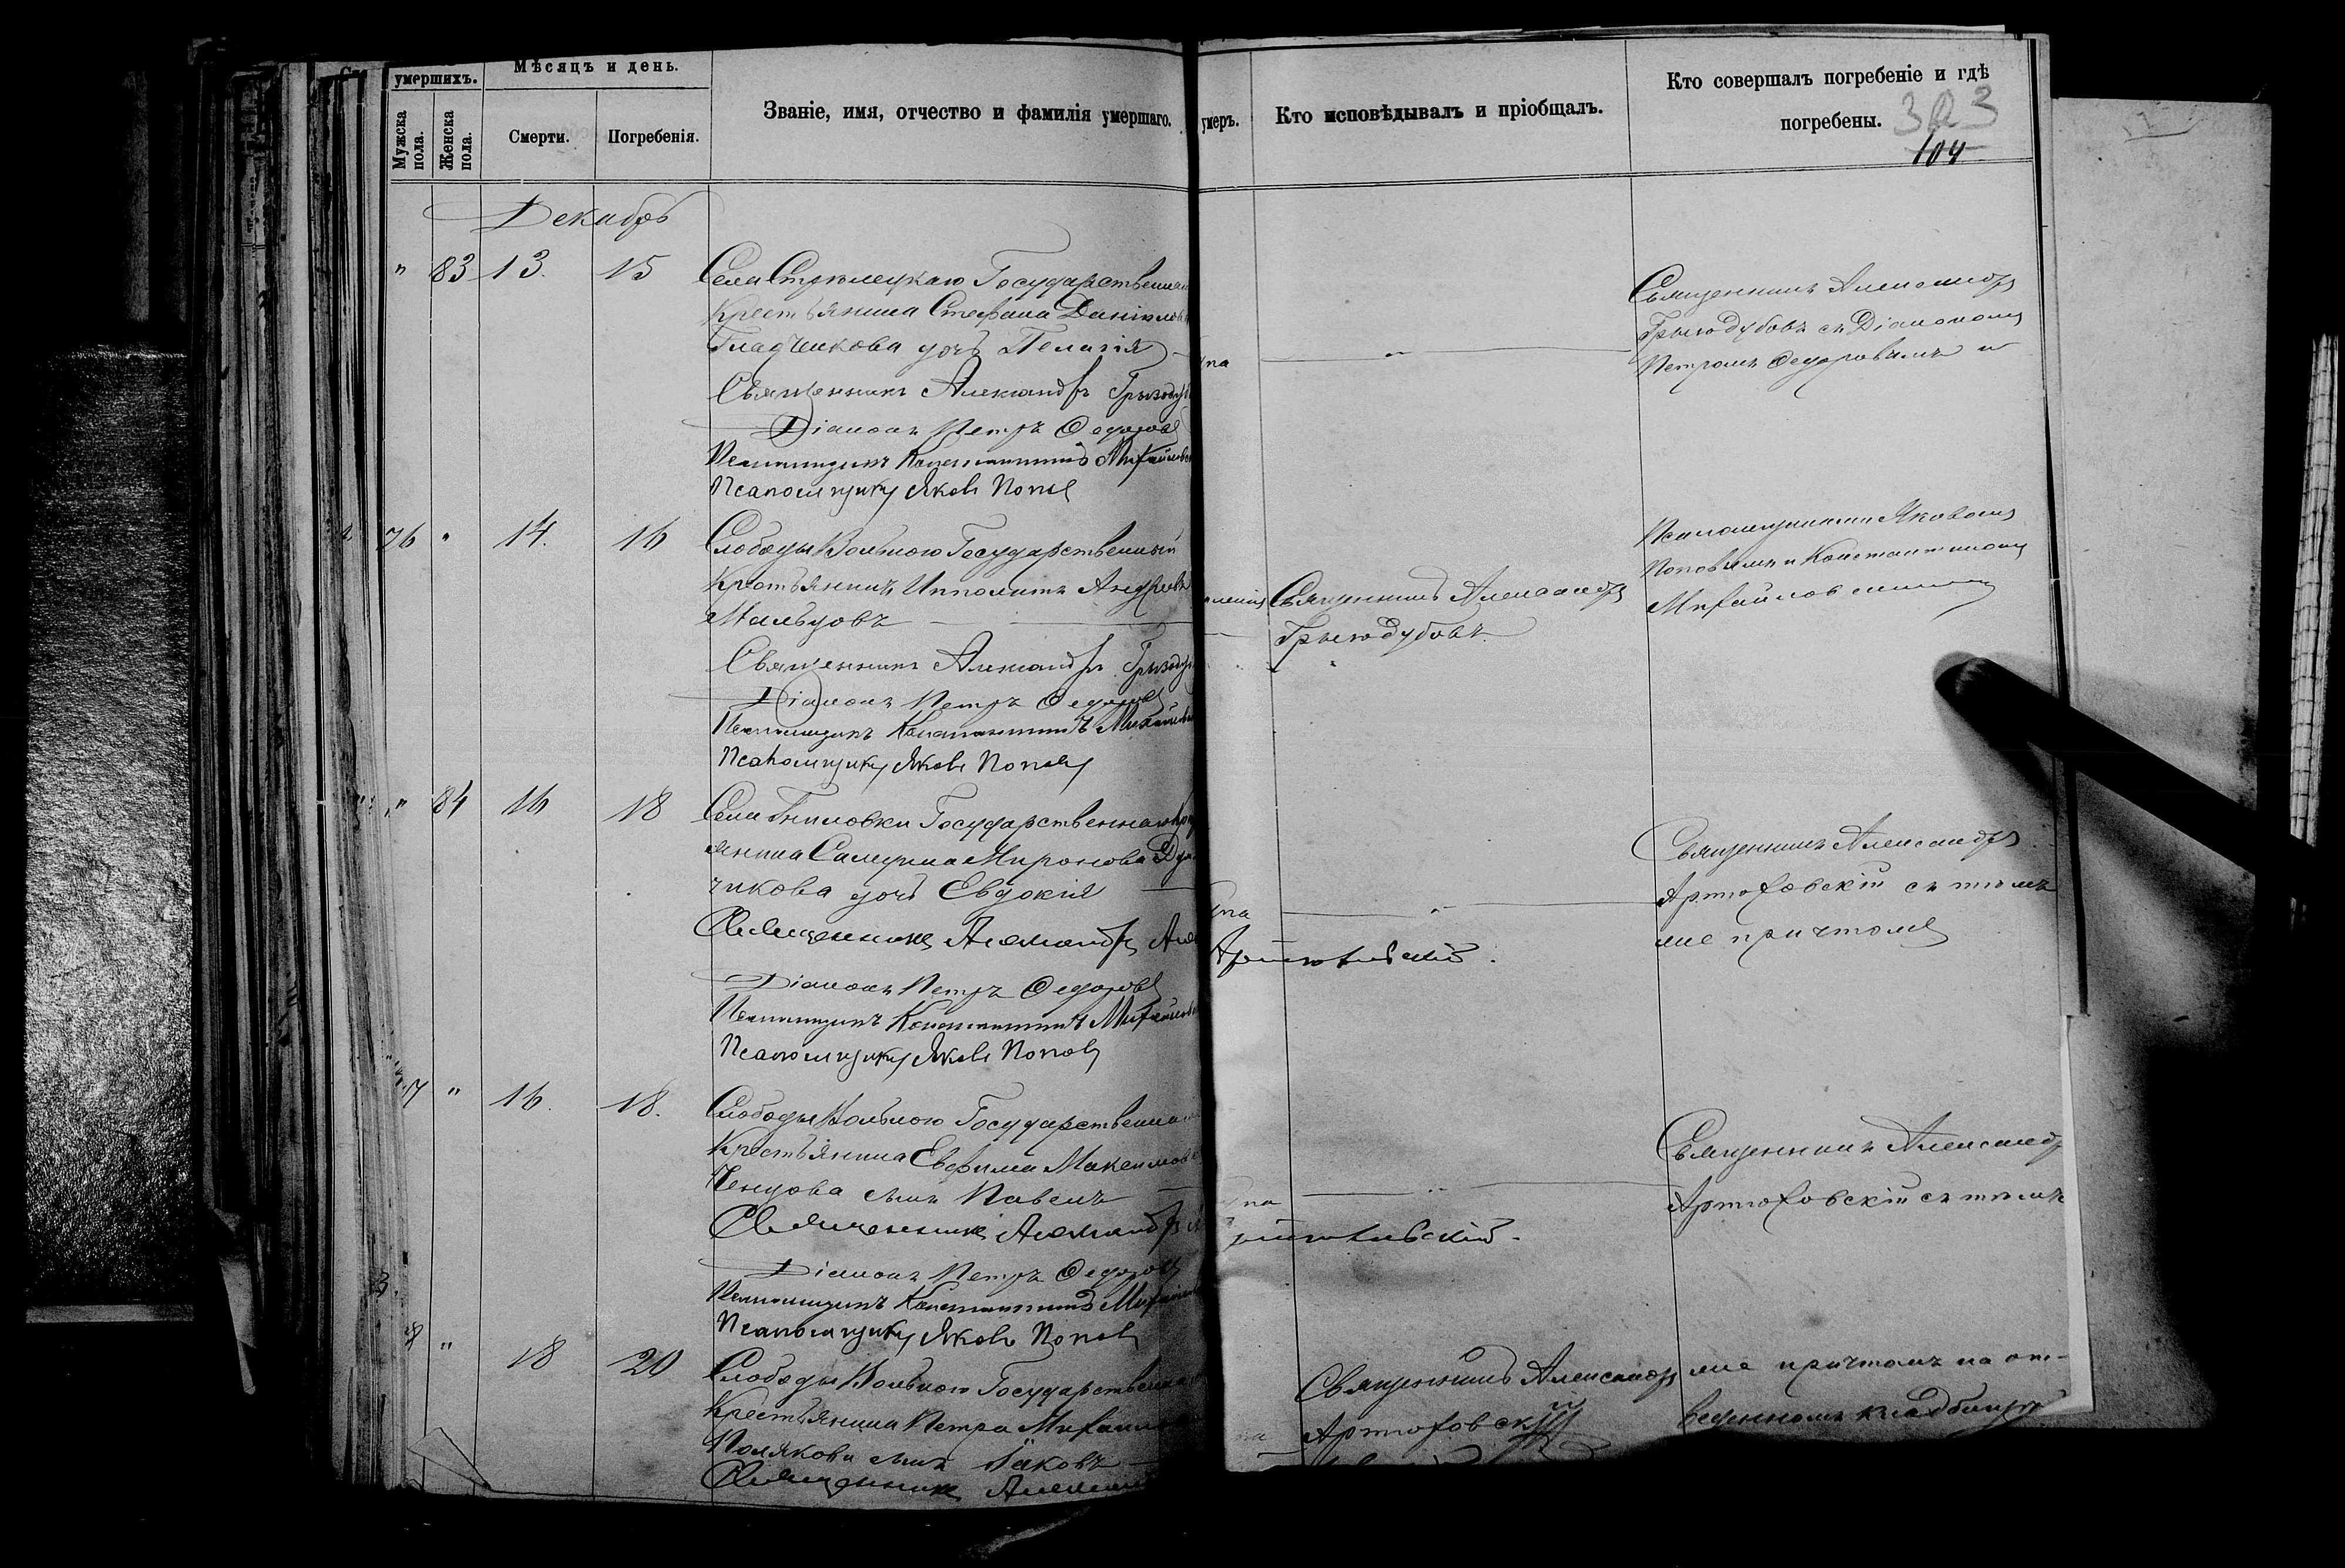 умершихъ.
Мѣсяцъ и день.
Мужска пола.
Женска пола.
Смерти.
Погребенія.
Званіе, имя, отчество и фамилія умершаго.
умеръ.
Кто исповѣдывалъ и пріобщалъ.
Кто совершалъ погребеніе и гдѣ
погребены.
104
Декабрь
" 83 13. 15
Села Стрѣлецкаго Государственна
Крестьянина Стефана Даніилов
Гладченкова дочь Пелагія
Священникъ Александръ Грызодуб
Діаконъ Петръ Ѳедоров
Псаломщикъ Константинъ Михайловс
Псаломщикъ Яковъ Попов
Священникъ Александръ
Грызодубовъ съ Діакономъ
Петромъ Ѳедоровымъ и
76 " 14. 16
Слободы Вольной Государственный
Крестьянинъ Ипполитъ Андреевъ
Мальцовъ
Священникъ Александръ Грызоду
Діаконъ Петръ Ѳедоров
Псаломщикъ Константинъ Михайлов
Псаломщикъ Яковъ Поповъ
Священникъ Александръ
Грызодубовъ.
Псаломщиками Яковомъ
Поповымъ и Константиномъ
Михайловскимъ
" 84 16 18
Села Гниловки Государственнаго Кре
янина Самуила Миронова
чикова дочь Евдокія
Священникъ Александръ
Артюховскій.
Діаконъ Петръ Ѳедоровъ
Псаломщикъ Константинъ Михайлов
Псаломщикъ Яковъ Поповъ
Священникъ Александръ
Артюховскій съ тѣмъ
же причтомъ
" 16. 18.
Слободы Вольной Государственна
Крестьянина Евфима Максимов
сынъ Павелъ
Священникъ Александръ
Діаконъ Петръ Ѳедоров
Псаломщикъ Константинъ Михайлов
Псаломщикъ Яковъ Попов
Священникъ Александр
Артюховскій съ тѣмъ
" 18 20
Слободы Вольной Государственна
Крестьянина Петра Михаил
Полякова сынъ Іаковъ
Священникъ Алекса
Священникъ Александръ
Артюховскій
же причтомъ на от-
веденномъ кладбищѣ